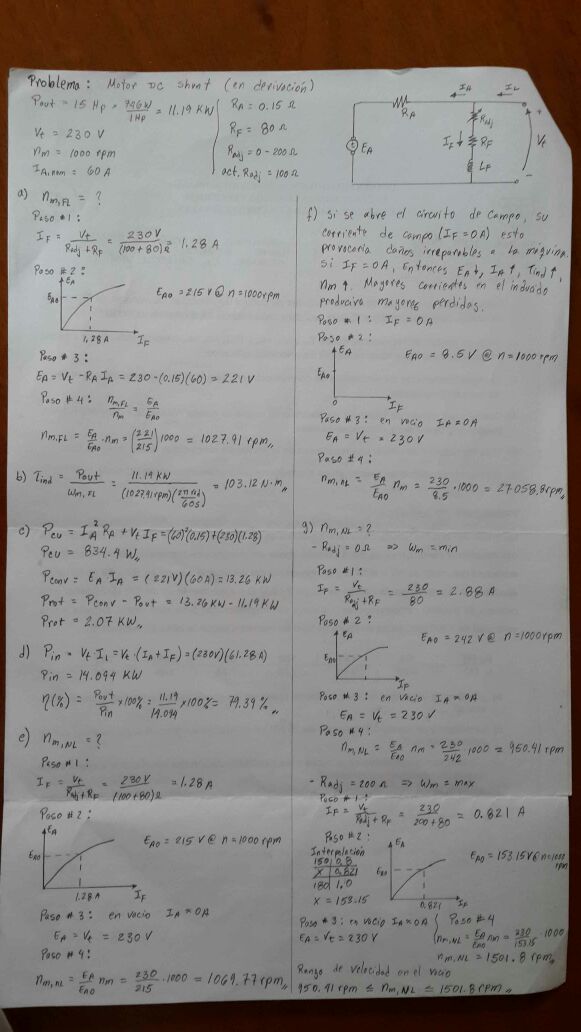 Problema: Motor DC shunt (en derivación)
Pout = 15 Hp × 746W/1Hp = 11.19 KW
Vt = 230 V
nm = 1000 rpm
IA,nom = 60 A
RA = 0.15 Ω
RF = 80 Ω
Radj = 0-200Ω
act. Radj = 100Ω
IA
IL
RA
Radj
IF
RF
LF
EA
+
Vt
-
a) nm,FL = ?
Paso #1:
IF = Vt/(Radj+RF) = 230V/(100+80)Ω = 1.28 A
Paso #2:
EA
EAO
1.28A
IF
EAO = 215 V @ n = 1000rpm
Paso # 3:
EA = Vt - RA IA = 230-(0.15)(60) = 221 V
Paso #4: nm,FL/nm = EA/EAO
nm,FL = EA/EAO · nm = (221/215) 1000 = 1027.91 rpm,,
b) Tind = Pout/ωm,FL = 11.19 KW/((1027.91rpm)(2π rad/60s)) = 103.12 N·m,,
c) Pcu = IA² RA + Vt IF = (60)²(0.15)+(230)(1.28)
Pcu = 834.4 W,,
Pconv = EA IA = (221V)(60A) = 13.26 KW
Prot = Pconv - Pout = 13.26KW - 11.19KW
Prot = 2.07 KW,,
d) Pin = Vt·IL = Vt·(IA+IF) = (230V)(61.28A)
Pin = 14.094 KW
η(%) = Pout/Pin ×100% = 11.19/14.094 ×100% = 79.39 %,,
e) nm,NL = ?
Paso #1:
IF = Vt/(Radj+RF) = 230V/(100+80)Ω = 1.28A
Paso #2:
EA
EAO
1.28A
IF
EAO = 215 V @ n = 1000 rpm
Paso # 3: en vacío IA ≈ 0A
EA = Vt = 230 V
Paso #4:
nm,NL = EA/EAO nm = 230/215 · 1000 = 1069.77rpm,,
f) Si se abre el circuito de campo, su
corriente de campo (IF = 0A) esto
provocaría daños irreparables a la máquina.
Si IF = 0A, Entonces EA↓, IA↑, Tind↑,
nm↑. Mayores corrientes en el inducido
producirá mayores pérdidas.
Paso #1: IF = 0A
Paso #2:
EA
EAO
0
IF
EAO = 8.5 V @ n = 1000rpm
Paso #3: en vacío IA ≈ 0A
EA = Vt = 230 V
Paso #4:
nm,NL = EA/EAO nm = 230/8.5 · 1000 = 27058.8rpm,,
g) nm,NL = ?
- Radj = 0Ω => ωm = min
Paso #1:
IF = Vt/(Radj+RF) = 230/80 = 2.88 A
Paso #2:
EA
EAO
IF
EAO = 242 V @ n = 1000rpm
Paso #3: en vacío IA ≈ 0A
EA = Vt = 230 V
Paso #4:
nm,NL = EA/EAO nm = 230/242 1000 = 950.41 rpm
- Radj = 200Ω => ωm = max
Paso #1:
IF = Vt/(Radj+RF) = 230/(200+80) = 0.821 A
Paso #2:
Interpolación
150 | 0.8
X | 0.821
180 | 1.0
X = 153.15
EA
EAO
0.821
IF
EAO = 153.15V@ n=1000 rpm
Paso #3: en vacío IA ≈ 0A
EA = Vt = 230V
Paso #4
nm,NL = EA/EAO nm = 230/153.15 · 1000
nm,NL = 1501.8 rpm,,
Rango de velocidad en el vacío
950.41 rpm ≤ nm,NL ≤ 1501.8rpm,,